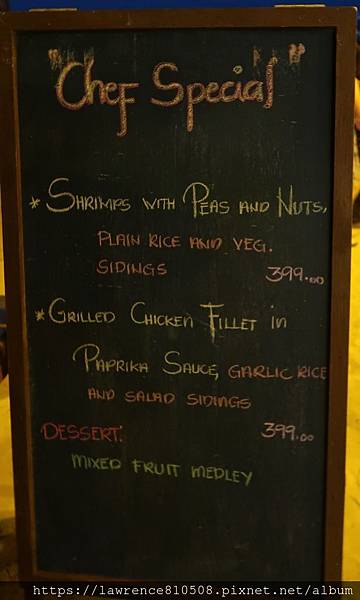 "Chef Special"
* Shrimps with Peas and Nuts,
Plain Rice and Veg.
Sidings 399.00
* Grilled Chicken Fillet in
Paprika Sauce, Garlic Rice
and Salad Sidings
Dessert: 399.00
Mixed Fruit Medley
https://lawrence810508.pixnet.net/album